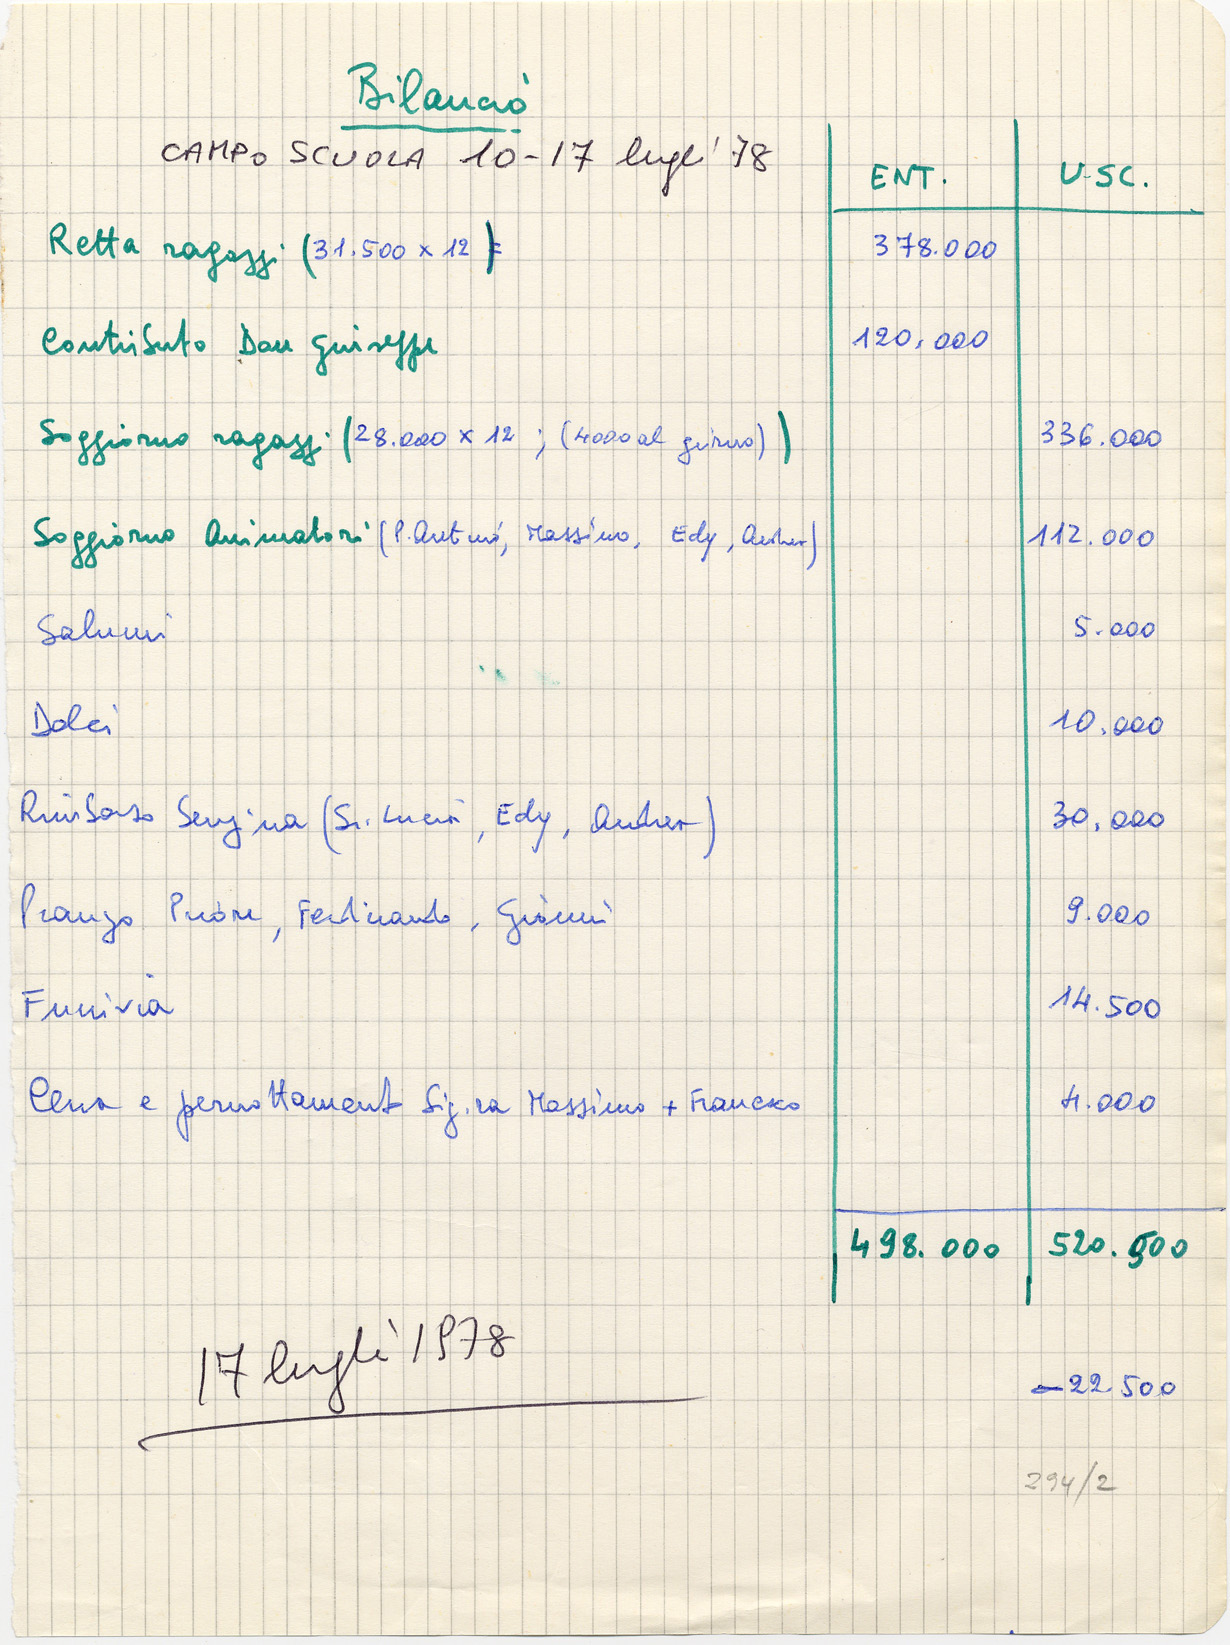 Bilancio
CAMPO SCUOLA 10-17 luglio '78
ENT. USC.
Retta ragazzi (31.500 x 12) = 378.000
Contributo Don Giuseppe 120.000
Soggiorno ragazzi (28.000 x 12 ; (4000 al giorno)) 336.000
Soggiorno Animatori (P. Antonio, Massimo, Edy, Esther) 112.000
Salumi 5.000
Dolci 10.000
Rimborso benzina (Sr. Lucia, Edy, Esther) 30.000
Pranzo Priore, Ferdinando, Gianni 9.000
Funivia 14.500
Cena e pernottamento Sig.ra Massimo + Francesco 4.000
498.000 520.500
17 luglio 1978
-22.500
294/2